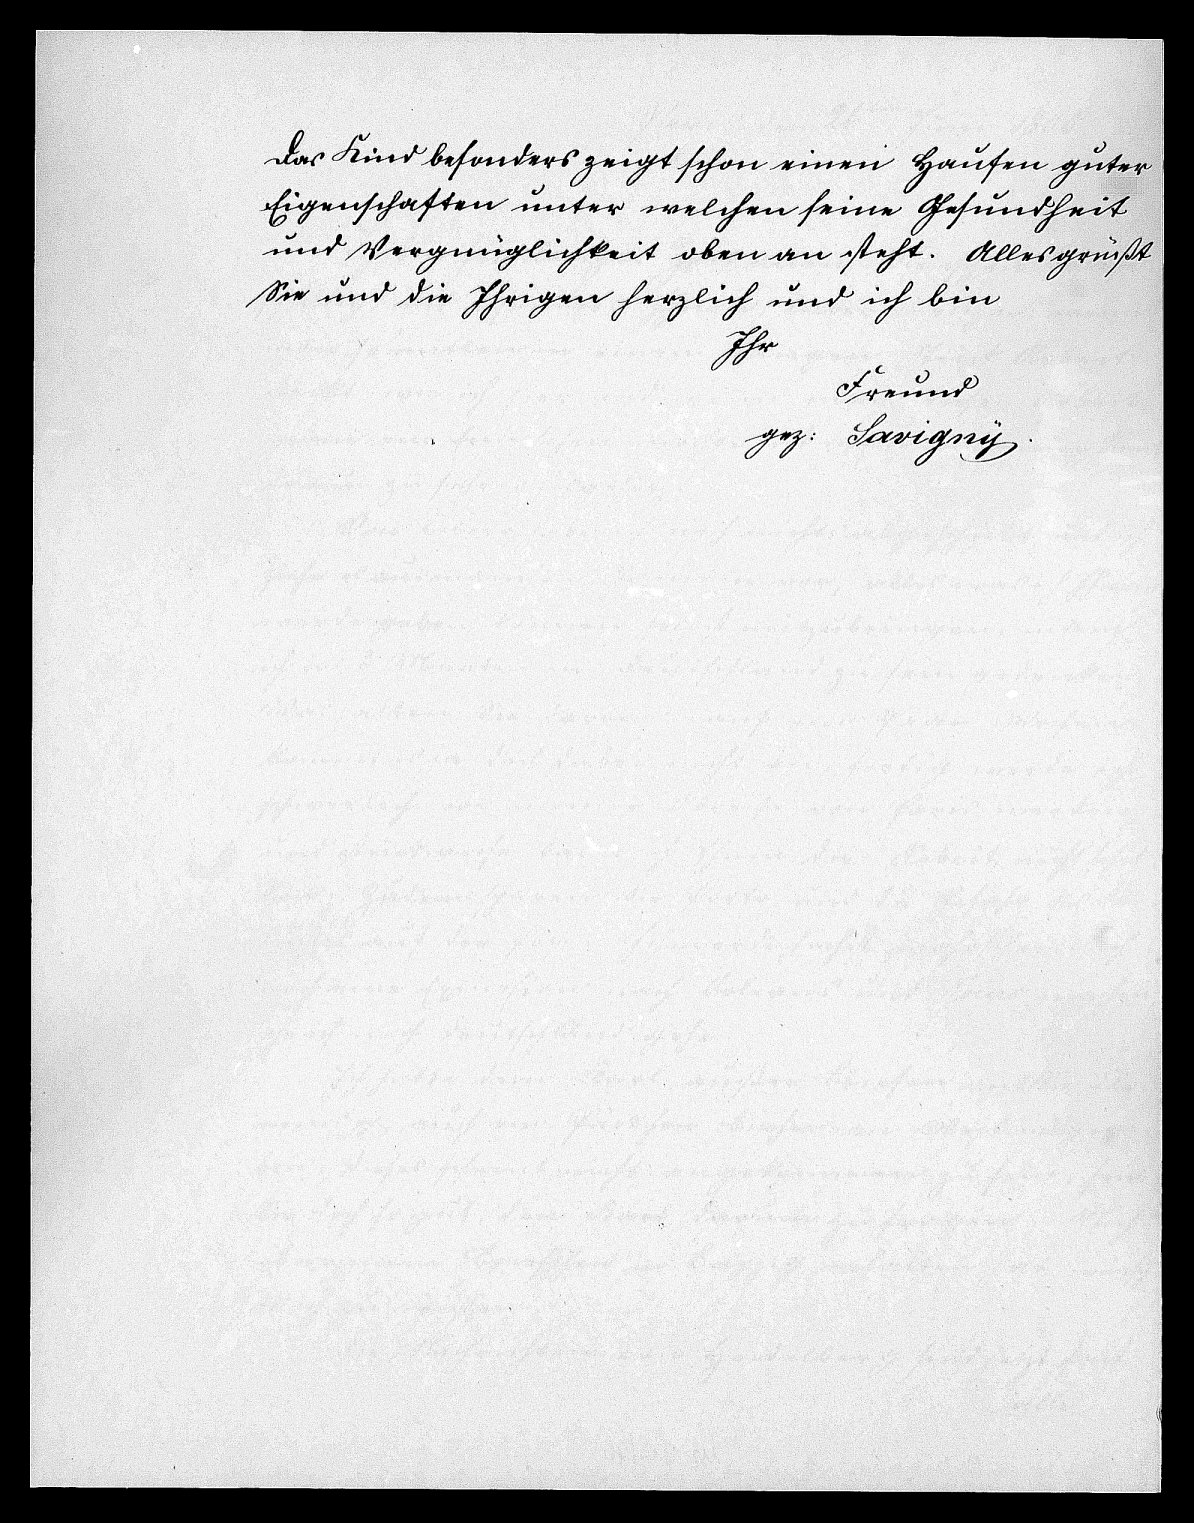 Das Kind besonders zeigt schon einen Haufen guter
Eigenschaften unter welchen seine Gesundheit
und Vergnüglichkeit oben an steht. Alles grüßt
Sie und die Ihrigen herzlich und ich bin
Ihr
Freund
gez: Savigny.